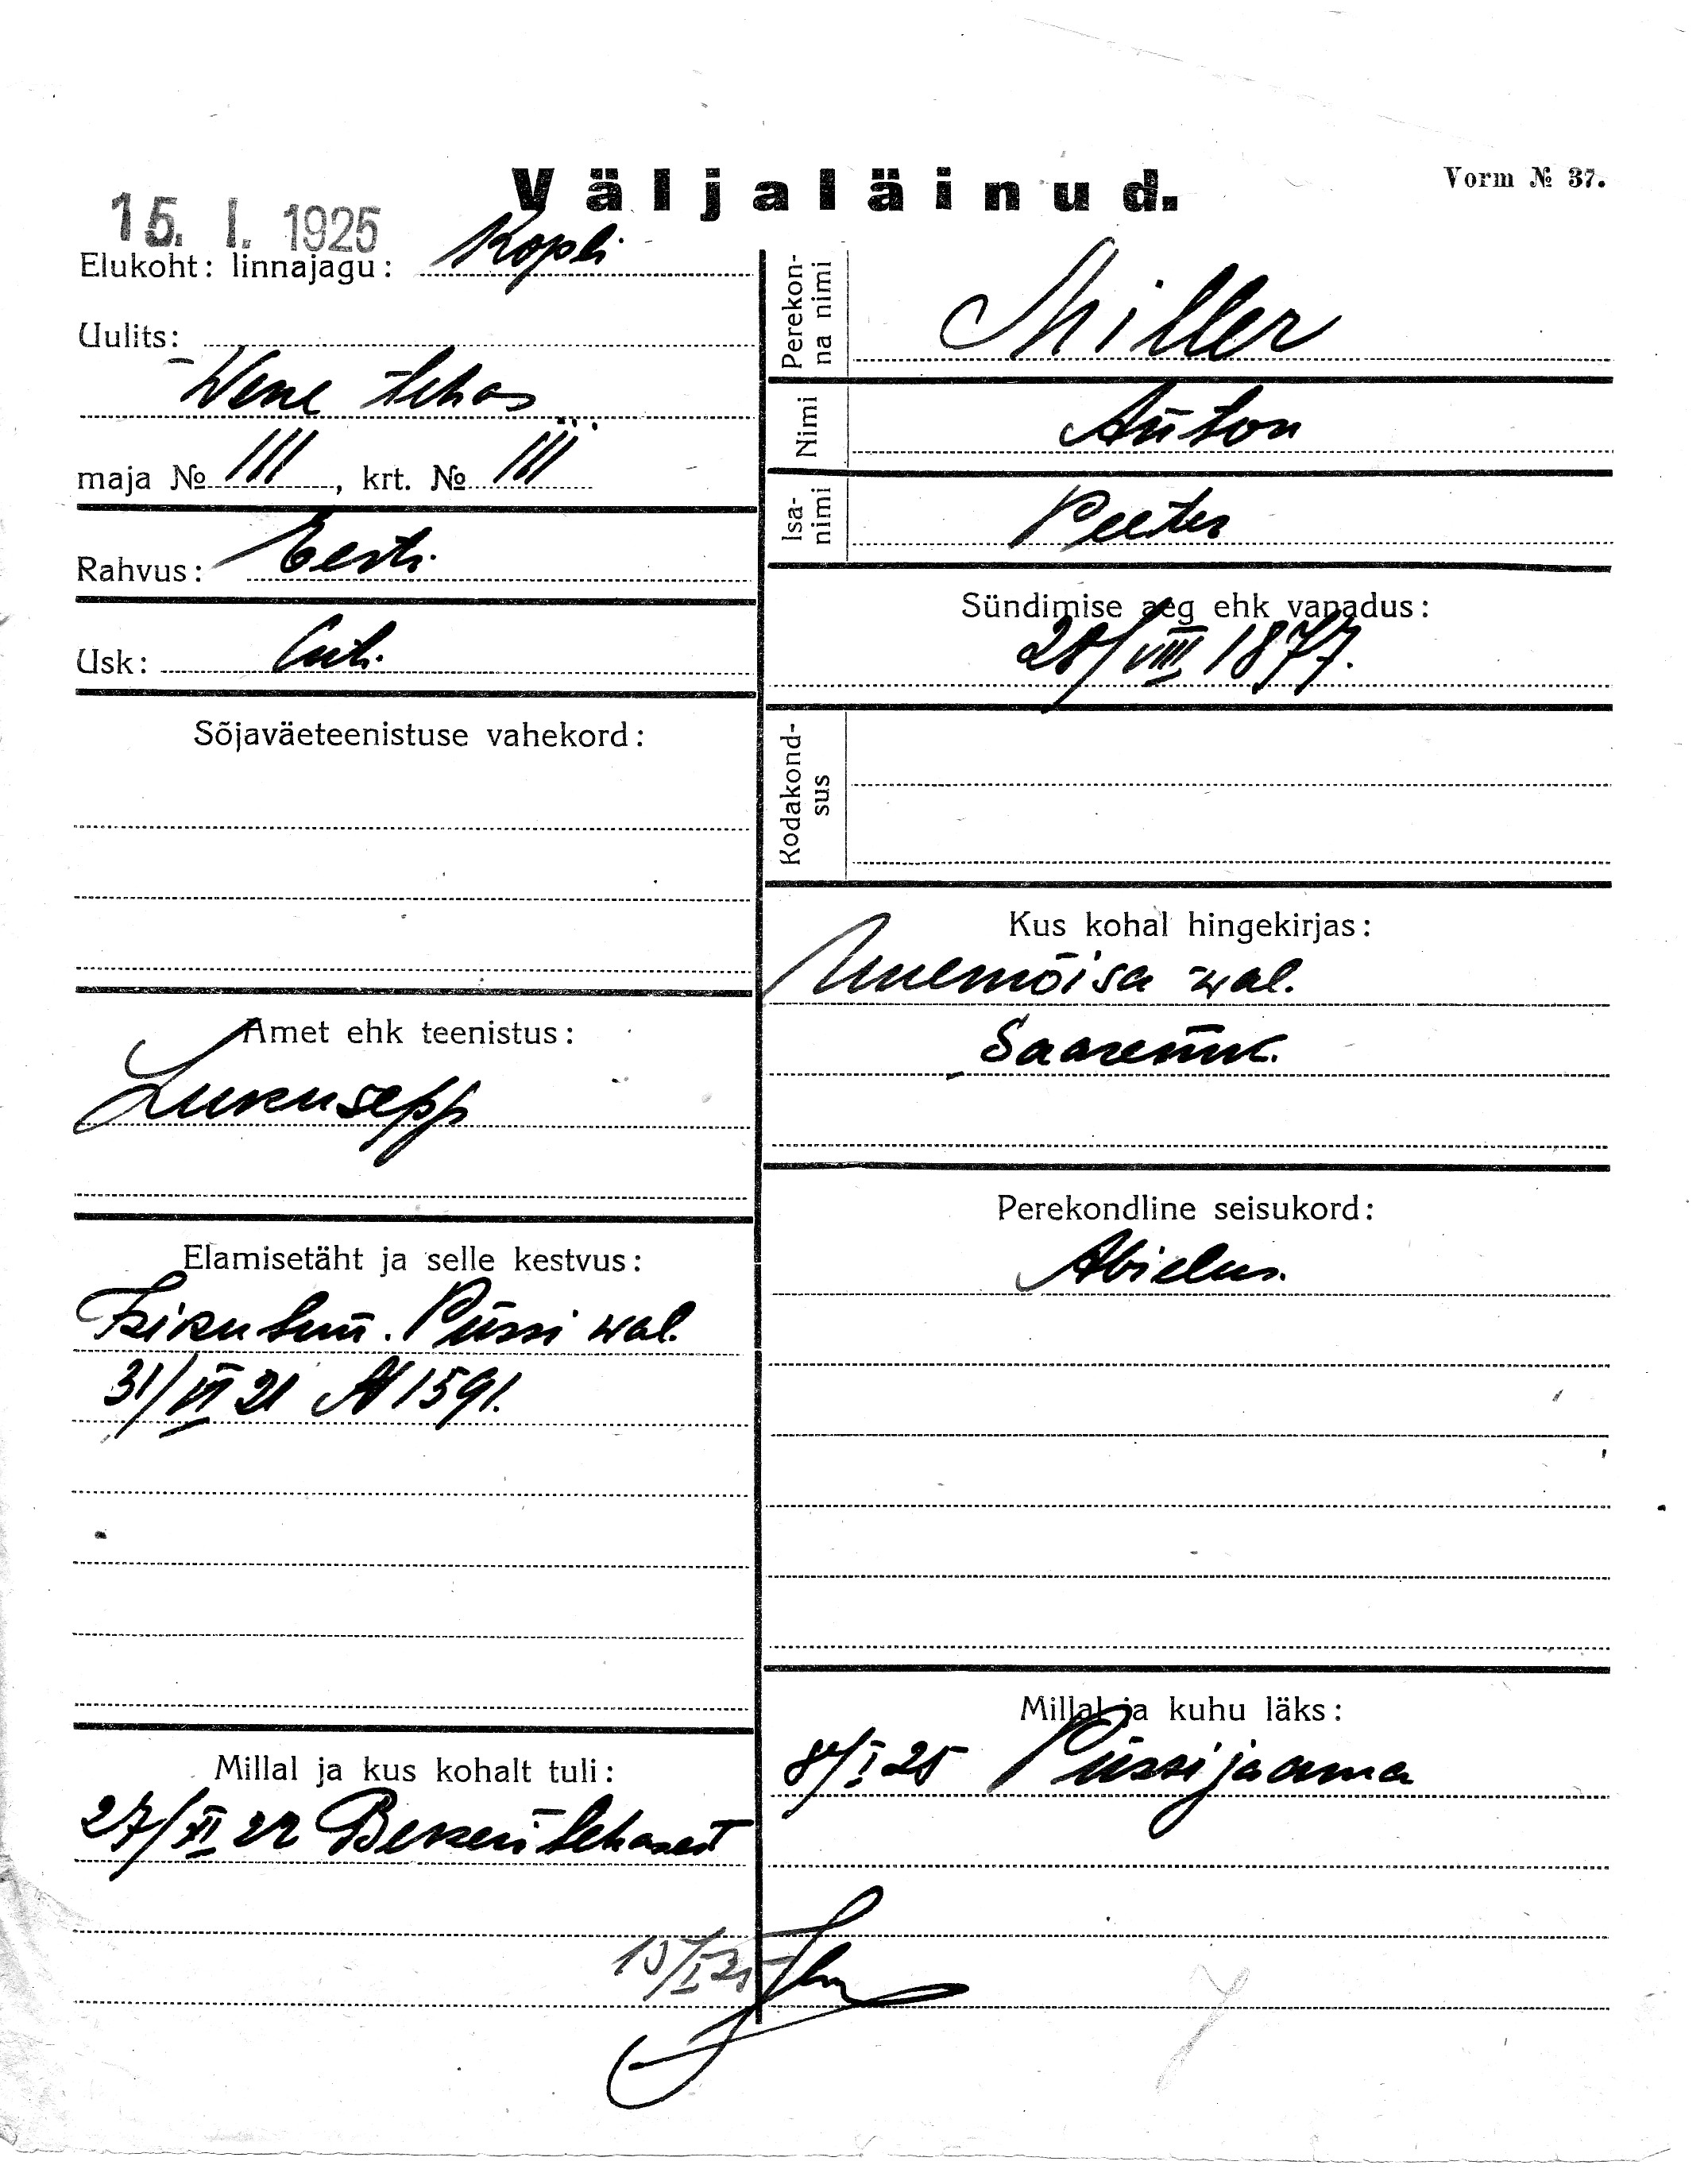 Väljaläinud.
Vorm № 37.
15. I. 1925
Elukoht: linnajagu: Kopli
Uulits:
Wene tehas
maja № III, krt. № III
Rahvus: Eesti
Usk:
Sõjaväeteenistuse vahekord:
Amet ehk teenistus:
Lukusepp
Elamisetäht ja selle kestvus:
Isikutun. Püssi wal.
31/VI 21 N 1591.
Millal ja kus kohalt tuli:
27/XI 22 Bekeri tehasest
15/I 25
Perekonna nimi
Miller
Nimi
Anton
Isanimi
Peeter
Sündimise aeg ehk vanadus:
28/VIII 1877.
Kodakondsus
Kus kohal hingekirjas:
Uuemõisa wal.
Saaremk.
Perekondline seisukord:
Abielus.
Millal ja kuhu läks:
8/I 25 Püssi jaama